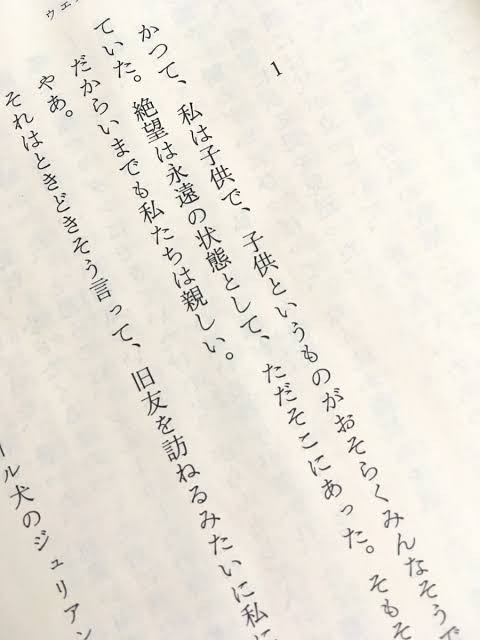 ウエ
1
かつて、私は子供で、子供というものがおそらくみんなそうで
ていた。絶望は永遠の状態として、ただそこにあった。そもそ
だからいまでも私たちは親しい。
やあ。
それはときどきそう言って、旧友を訪ねるみたいに私に
ール犬のジュリアン